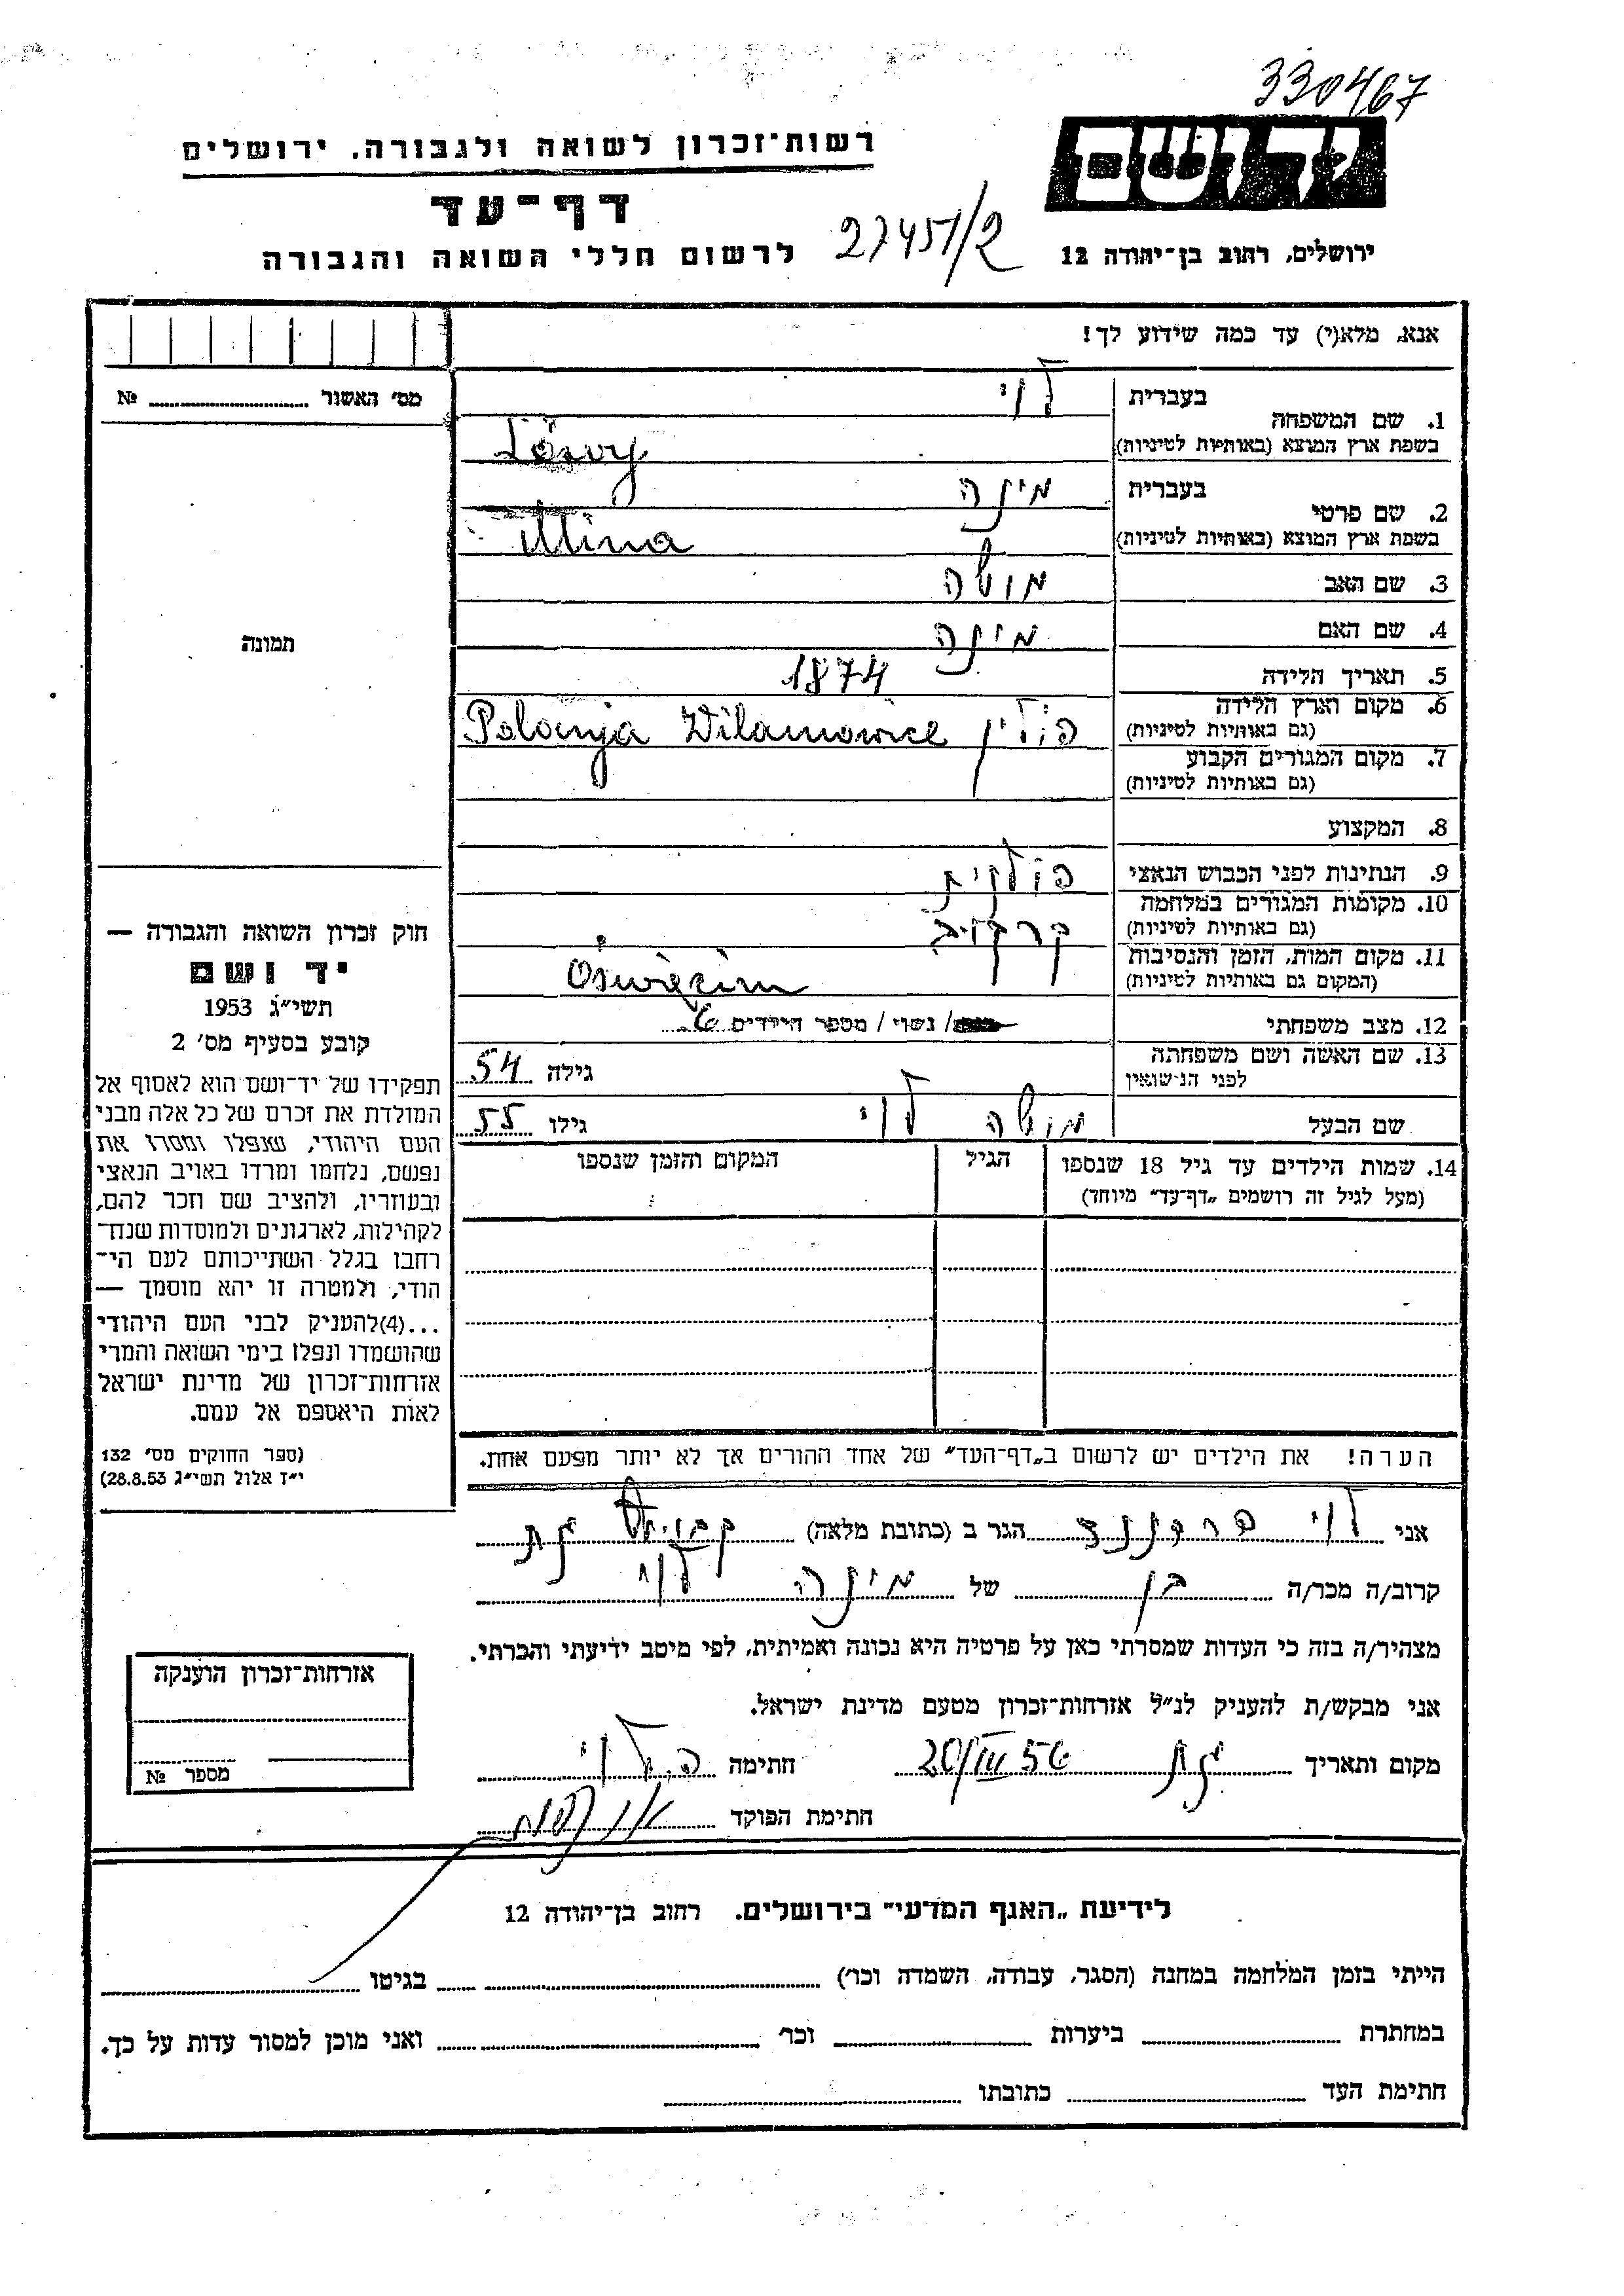 330467
רשות־זכרון לשואה ולגבורה, ירושלים
דף־עד
לרשום חללי השואה והגבורה
27451/2
ידושם
ירושלים, רחוב בן־יהודה 12
אנא, מלא(י) עד כמה שידוע לך!
מס׳ האשור № 
1. שם המשפחה בעברית לוי
בשפת ארץ המוצא (באותיות לטיניות) Löwy
2. שם פרטי בעברית מינה
בשפת ארץ המוצא (באותיות לטיניות) Mina
3. שם האב משה
4. שם האם מינה
5. תאריך הלידה 1874
6. מקום וארץ הלידה (גם באותיות לטיניות) פולין Polonja Wilamowice
7. מקום המגורים הקבוע
(גם באותיות לטיניות)
8. המקצוע
9. הנתינות לפני הכבוש הנאצי פולנית
10. מקומות המגורים במלחמה
(גם באותיות לטיניות) קרקוב
11. מקום המות, הזמן והנסיבות
(המקום גם באותיות לטיניות) Oświęcim
12. מצב משפחתי / נשוי / מספר הילדים 6
13. שם האשה ושם משפחתה לפני הנישואין גילה 54
שם הבעל משה לוי גילו 55
14. שמות הילדים עד גיל 18 שנספו הגיל המקום והזמן שנספו
(מעל לגיל זה רושמים „דף־עד״ מיוחד)
הערה! את הילדים יש לרשום ב„דף־העד״ של אחד ההורים אך לא יותר מפעם אחת.
תמונה
חוק זכרון השואה והגבורה —
יד ושם
תשי״ג 1953
קובע בסעיף מס׳ 2
תפקידו של יד־ושם הוא לאסוף אל
המולדת את זכרם של כל אלה מבני
העם היהודי, שנפלו ומסרו את
נפשם, נלחמו ומרדו באויב הנאצי
ובעוזריו, ולהציב שם וזכר להם,
לקהילות, לארגונים ולמוסדות שנח־
רבו בגלל השתייכותם לעם הי־
הודי, ולמטרה זו יהא מוסמך —
...(4)להעניק לבני העם היהודי
שהושמדו ונפלו בימי השואה והמרי
אזרחות־זכרון של מדינת ישראל
לאות היאספם אל עמם.
(ספר החוקים מס׳ 132
י״ז אלול תשי״ג 28.8.53)
אני לוי פרדיננד הגר ב (כתובת מלאה)
קרוב/ה מכר/ה בן של מינה לוי
מצהיר/ה בזה כי העדות שמסרתי כאן על פרטיה היא נכונה ואמיתית, לפי מיטב ידיעתי והכרתי.
אני מבקש/ת להעניק לנ״ל אזרחות־זכרון מטעם מדינת ישראל.
מקום ותאריך 20/III 56 חתימה פ. לוי
חתימת הפוקד
אזרחות־זכרון הוענקה
מספר №
לידיעת „האגף המדעי״ בירושלים, רחוב בן־יהודה 12
הייתי בזמן המלחמה במחנה (הסגר, עבודה, השמדה וכו׳) בגיטו
במחתרת ביערות וכו׳ ואני מוכן למסור עדות על כך.
חתימת העד כתובתו